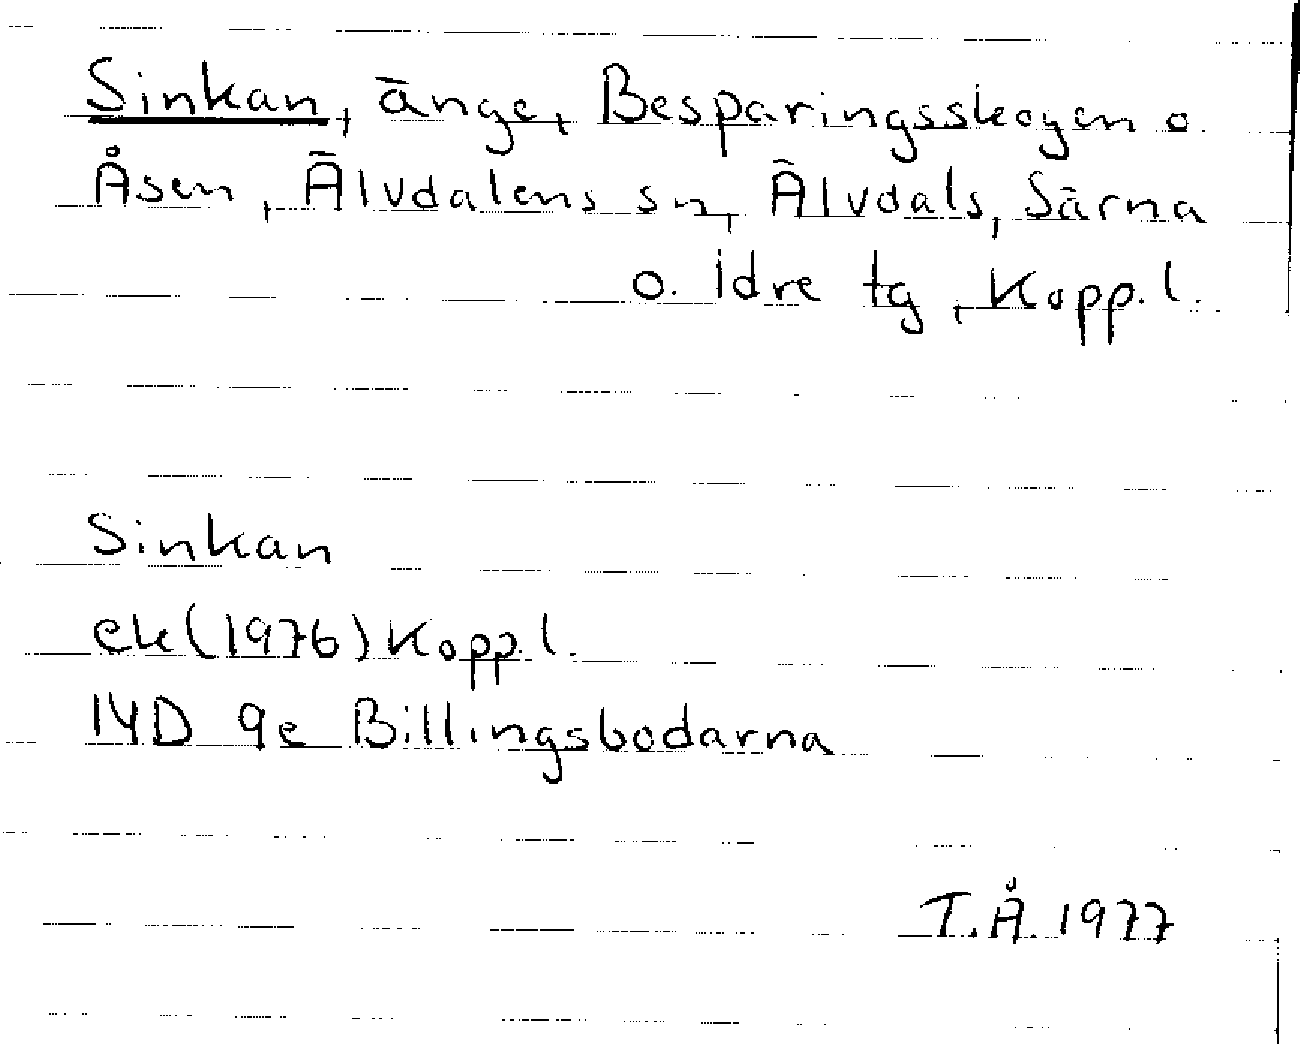 Sinkan, änge, Besparingsskogen o.
Åsen, Älvdalens sn, Älvdals, Särna
o. Idre tg, Kopp. l.
Sinkan
ek (1976) Kopp. l.
14D 9e Billingsbodarna
T.Å. 1977